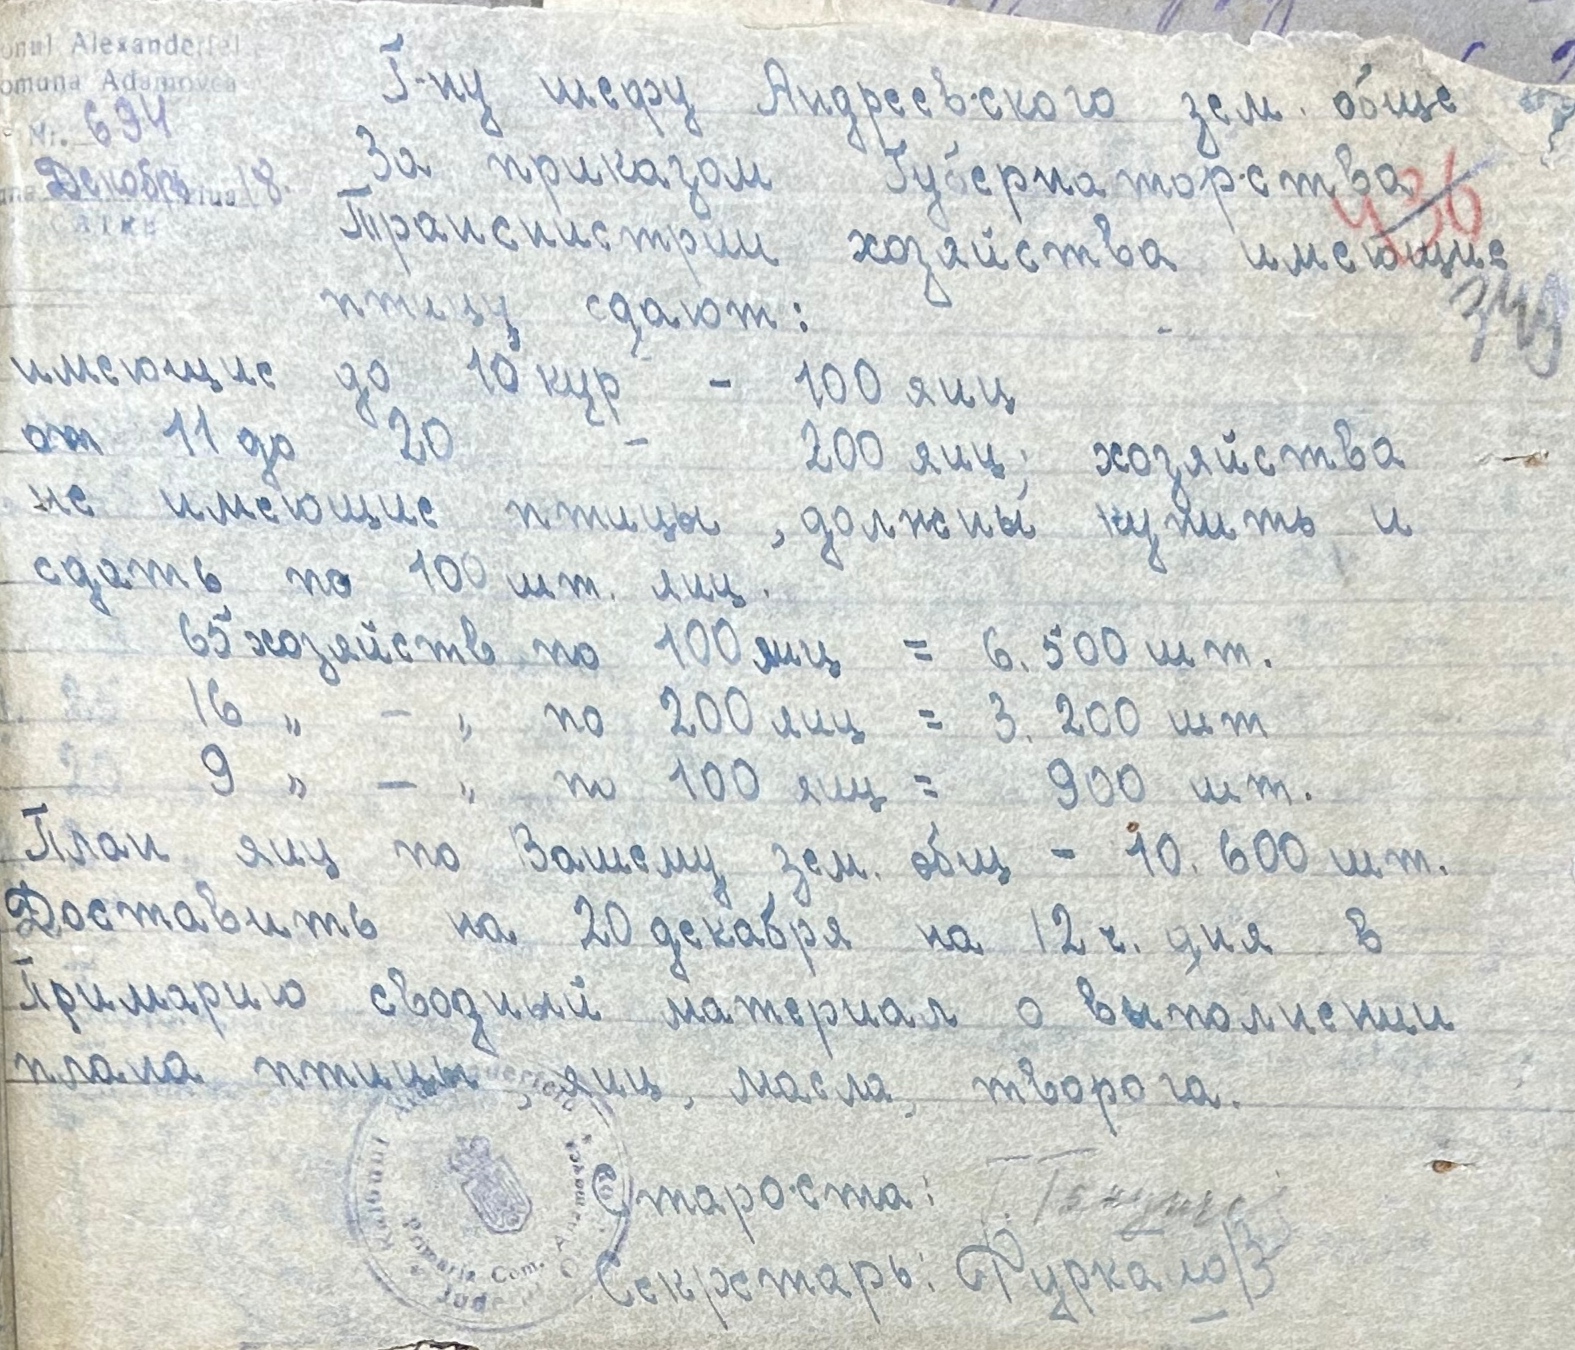 onul Alexanderfel
omuna Adamovca
Nr. 694
Декабрь 18.
Г-ну шефу Андреевского зем. обще
За приказом Губернаторства
436
Транснистрии хозяйства имеющие
птицу сдают:
имеющие до 10 кур - 100 яиц
от 11 до 20 - 200 яиц; хозяйства
не имеющие птицы, должны купить и
сдать по 100 шт. яиц.
65 хозяйств по 100 яиц = 6.500 шт.
16 „ — „ по 200 яиц = 3.200 шт
9 „ — „ по 100 яиц = 900 шт.
План яиц по Вашему зем. общ - 10.600 шт.
Доставить на 20 декабря на 12 ч. дня в
Примарию сводный материал о выполнении
плана птицы, яиц, масла, творога.
Староста:
Секретарь: Фуркало
Raionul Primaria Com. Adamovca